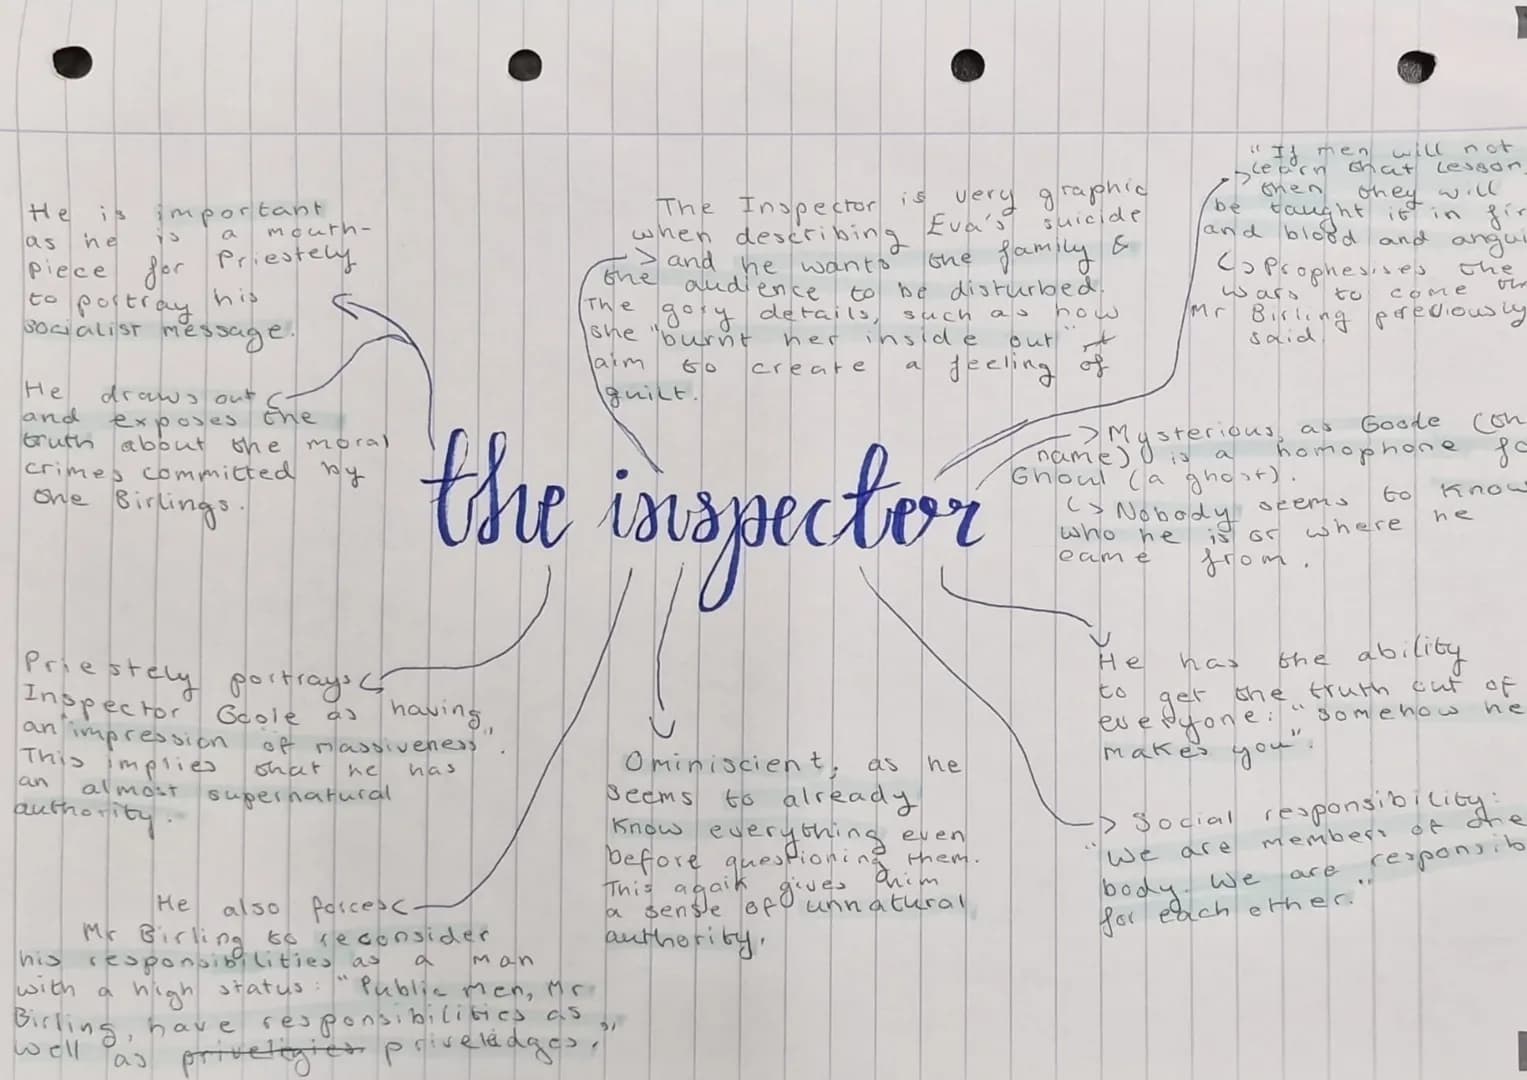 He is important
as he is a mouth-
piece for Priestely
to portray his
socialist message.
He draws out
and exposes the
truth about the moral
crimes committed by
the Birlings.
The Inspector is very graphic
when describing Eva's suicide
and he wants the family &
the audience to be disturbed.
The gory details, such as how
she "burnt her inside out"
aim to create a feeling of
guilt.
"If men will not
learn that lesson,
then they will
be taught it in
and blood and
Prophesises the
wars to come
Mr Birling previously
said.
Mysterious, as Goole
name) is a homophone
Ghoul (a ghost).
Nobody seems to know
who he is or where he
came from.
the inspector
Priestely portrays
Inspector Goole as having
an "impression of massiveness".
This implies that he has
an almost supernatural
authority.
He also forces
Mr Birling to reconsider
his responsibilities as a man
with a high status: "Public men, Mr
Birling, have responsibilities as
well as priveledges."
Ominiscient, as he
seems to already
know everything even
before questioning them.
This again gives him
a sense of unnatural
authority.
He has the ability
to get the truth out of
everyone: "somehow he
makes you".
Social responsibility:
"We are members of one
body. We are
for each other."